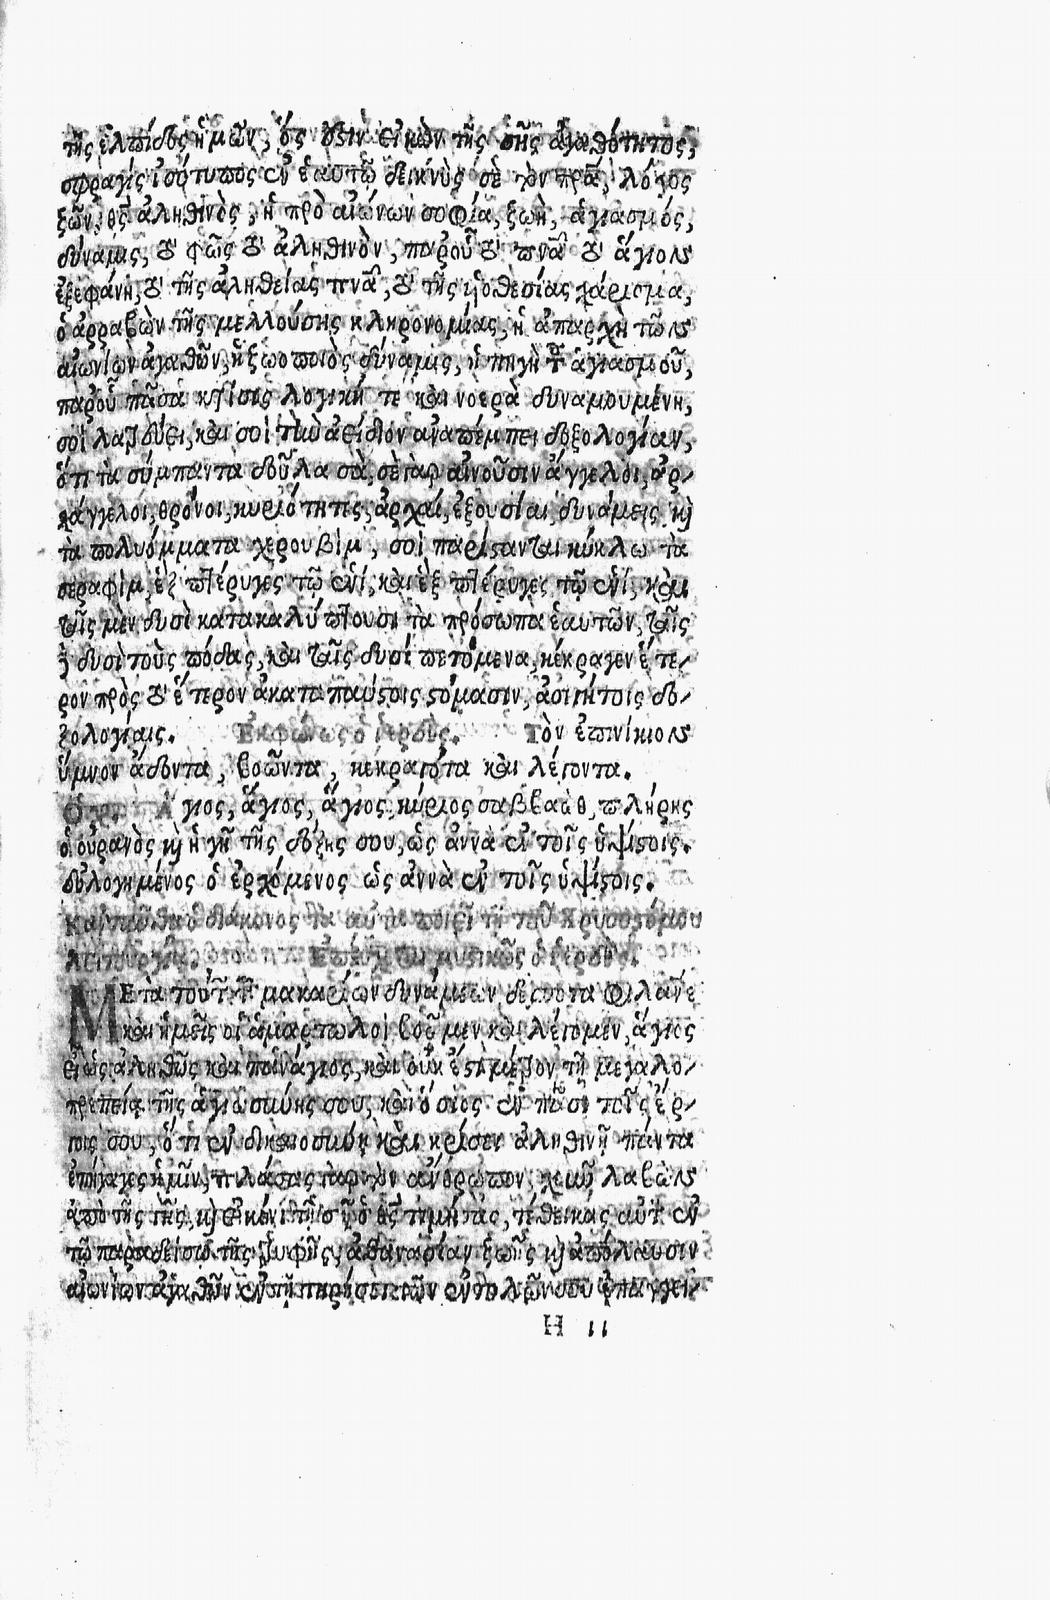 τῆς ἐλπίδος ἡμῶν, ὅς ἐστιν εἰκὼν τῆς σῆς ἀγαθότητος,
σφραγὶς ἰσότυπος ἐν ἑαυτῷ δεικνὺς σὲ τὸν πρ̅α, λόγος
ζῶν, θς̅ ἀληθινὸς, ἡ πρὸ αἰώνων σοφία, ζωὴ, ἁγιασμός,
δύναμις, τὸ φῶς τὸ ἀληθινὸν, παρ' οὗ τὸ πνα̅ τὸ ἅγιον
ἐξεφάνη, τὸ τῆς ἀληθείας πνα̅, τὸ τῆς υἱοθεσίας χάρισμα,
ὁ ἀρραβὼν τῆς μελλούσης κληρονομίας, ἡ ἀπαρχὴ τῶν
αἰωνίων ἀγαθῶν, ἡ ζωοποιὸς δύναμις, ἡ πηγὴ τοῦ ἁγιασμοῦ,
παρ' οὗ πᾶσα κτίσις λογική τε καὶ νοερὰ δυναμουμένη,
σοὶ λατρεύει, καὶ σοὶ τὴν ἀείδιον ἀναπέμπει δοξολογίαν,
ὅτι τὰ σύμπαντα δοῦλα σὰ, σὲ γὰρ αἰνοῦσιν ἄγγελοι, ἀρ-
χάγγελοι, θρόνοι, κυριότητες, ἀρχαί, ἐξουσίαι, δυνάμεις καὶ
τὰ πολυόμματα χερουβὶμ, σοὶ παρίστανται κύκλω τὰ
σεραφὶμ, ἓξ πτέρυγες τῷ ἑνί, καὶ ἓξ πτέρυγες τῷ ἑνί, καὶ
ταῖς μὲν δυσὶ κατακαλύπτουσι τὰ πρόσωπα ἑαυτῶν, ταῖς
δὲ δυσὶ τοὺς πόδας, καὶ ταῖς δυσί πετόμενα, κέκραγεν ἕτε-
ρον πρὸς τὸ ἕτερον ἀκαταπαύστοις στόμασιν, ἀσιγήτοις δο-
ξολογίαις. Ἐκφώνως ὁ ἱερεὺς. Τὸν ἐπινίκιον
ὕμνον ἄδοντα, βοῶντα, κεκραγότα καὶ λέγοντα.
Ὁ χο. Ἅγιος, ἅγιος, ἅγιος, κύριος σαββαὼθ, πλήρης
ὁ οὐρανὸς καὶ ἡ γῆ τῆς δόξης σου, ὡς ἀννὰ ἐν τοῖς ὑψίστοις.
εὐλογημένος ὁ ἐρχόμενος ὡς ἀννὰ ἐν τοῖς ὑψίστοις.
ὁ διάκονος τὰ αὐτὰ ποιεῖ τῇ τοῦ Χρυσοστόμου
Ἐπεύχεται μυστικῶς ὁ ἱερεὺς.
ΜΕτὰ τούτων τῶν μακαρίων δυνάμεων δέσποτα φιλάνε
καὶ ἡμεῖς οἱ ἁμαρτωλοὶ βοῶμεν καὶ λέγομεν, ἅγιος
εἶ ὡς ἀληθῶς καὶ πανάγιος, καὶ οὐκ ἔστι μέτρον τῇ μεγαλο-
πρεπείᾳ τῆς ἁγιωσύνης σου, καὶ ὅσιος ἐν πᾶσι τοῖς ἔρ-
γοις σου, ὅτι ἐν δικαιοσύνῃ καὶ κρίσει ἀληθινῇ πάντα
ἐπήγαγες ἡμῖν, πλάσας γὰρ τὸν ἄνθρωπον, χοῦν λαβὼν
ἀπὸ τῆς γῆς, καὶ εἰκόνι τῇ σῇ ὁ θς̅ τιμήσας, τέθεικας αὐτ ἐν
τῷ παραδείσῳ τῆς τρυφῆς, ἀθανασίαν ζωῆς καὶ ἀπόλαυσιν
αἰωνίων ἀγαθῶν ἐν τῇ τηρήσει τῶν ἐντολῶν σου ἐπαγγει-
Η ιι